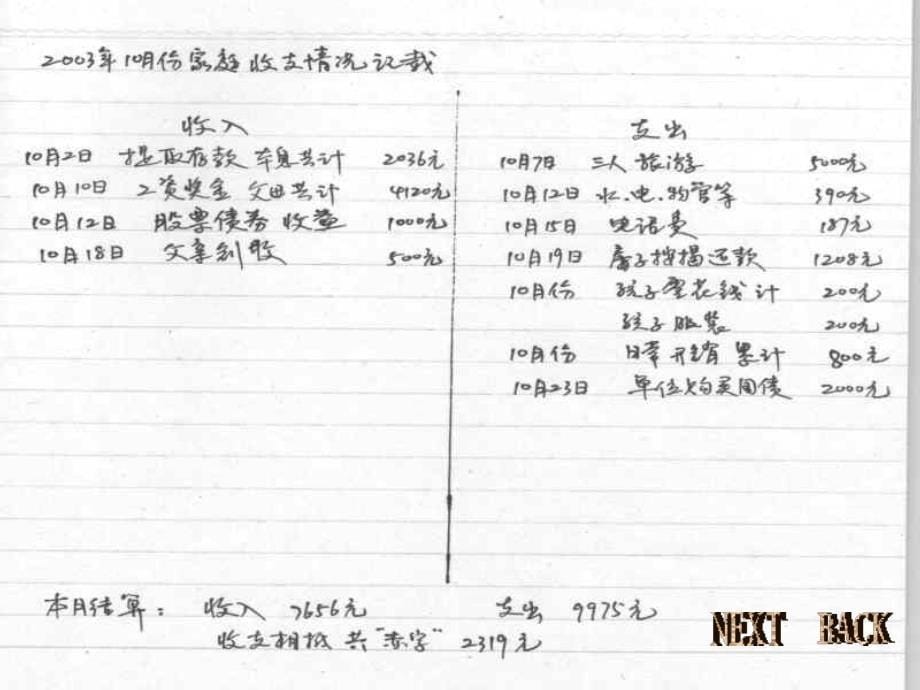 2003年10月份家庭收支情况记载
收入
10月2日 提取存款 本息共计 2036元
10月10日 工资奖金 父母共计 4120元
10月12日 股票债券收益 1000元
10月18日 父亲利收 500元
支出
10月7日 三人旅游 5000元
10月12日 水.电.物管等 390元
10月15日 电话费 187元
10月19日 房子按揭还款 1208元
10月份 孩子零花钱计 200元
孩子服装 200元
10月份 日常开销累计 800元
10月23日 单位购买国债 2000元
本月结算： 收入 7656元 支出 9975元
收支相抵 共“赤字” 2319元
NEXT BACK